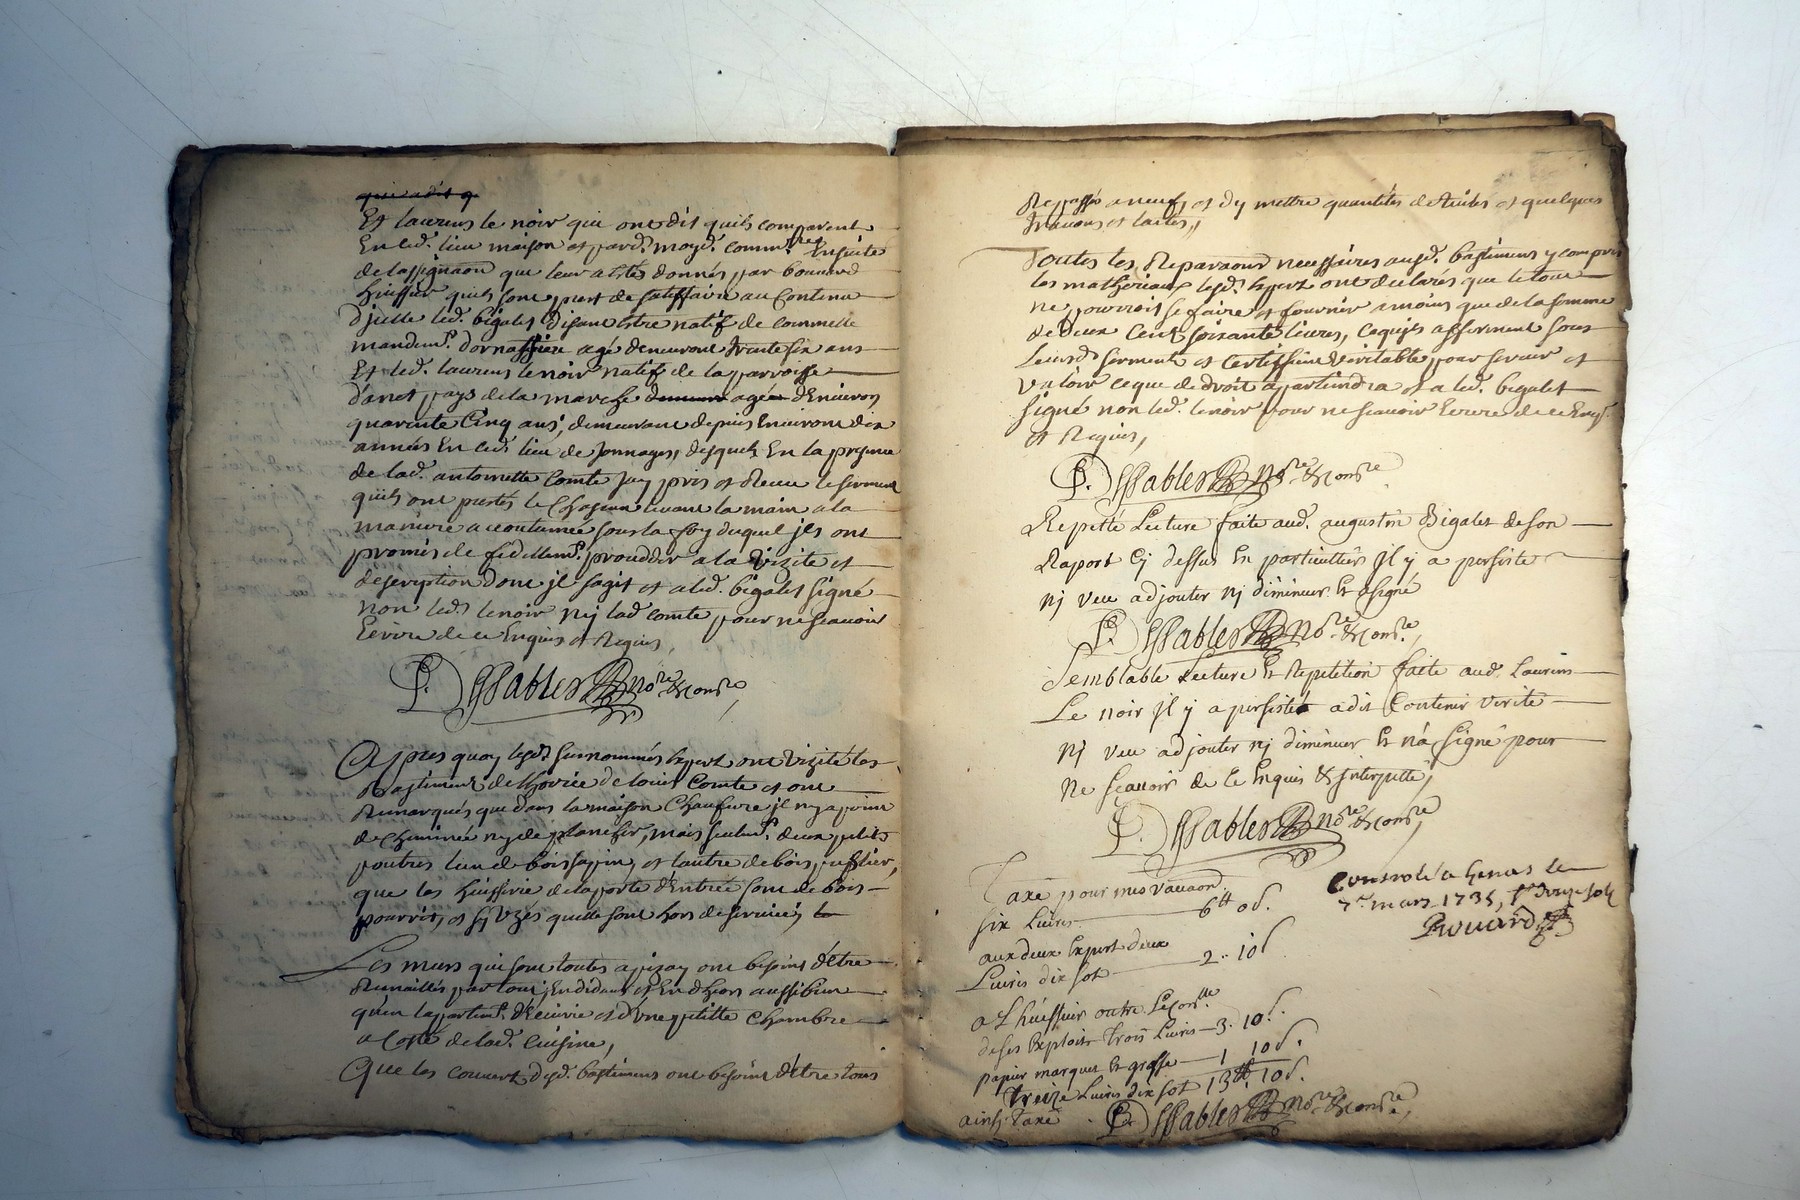 qui a dit q
Et laurens le noir qui ont dit quils comparent
En led. lieu maison et pard. moyd. commre ensuite
de lassignaon que leur a estés donnés par bouuard
huissier quils sont prest de satisfaire au Contenu
djcelle led. bigalet disant Estre natif de commelle
mandemt. dornassieu agé denuiront trente six ans
Et led. laurens lenoir natif de la parroisse
danet pays de la marche demeura agée dEnuiron
quarente Cinq ans, demeurant depuis Enuiront dix
années En led. lieu de Jonnages, desquels En la presence
de lad. antoinette Comte Jay pris et Receu le serment
quils ont prestés le Chascun leuant la main a la
maniere accoutumée sous la foy duquel jls ont
promis de fidellemt. procedder a la vizite et
description dont jl sagit et a led. bigalet signé
non led. lenoir Nij lad. comte pour ne scauoir
Ecrire de ce Enquis et Requis,
P. Dessables nore & comre,
Apres quoy lesd. surnommés Expert ont vizité les
Bastiment de lhoirie de louis Comte et ont
Remarqués que dans la maison Chaufure jl ny a point
de Cheminée ny de plancher, mais seulemt. deux petits
poutres lun de bois sapin, et lautre de bois publier,
que les huisserie de la porte dEntrée sont de bois
pourris, et sy vzés quelle sont hors de seruice, le
Les murs qui sont toutes a pizay ont besoint dEtre
Remaillés par tout, En didans et En dhors aussi bien
quen lapartemt. dEcuirie et dvne petitte Chambre
a Coté de lad. Cuisine,
Que les couuert desd. bastimens ont besoint dEtre tous
Repassés a neuf, et dy mettre quantités de tuiles et quelques
trauons et lattes,
Toutes les Reparaons necessaires ausd. bastimens y compris
les matheriaux lesd. Expert ont declarés que le tout
ne pourroit se faire et fournir a moins que de la somme
de deux Cent soixante liures, Ce quils afferment sous
leursd. serment et Certiffient veritable pour seruir et
valoir ce que de droit appartiendra et a led. bigalet
signé non led. lenoir pour ne scauoir Ecrire de ce Enqs.
et Requis,
P. Dessables nore & comre
Repetté Lecture faite aud. augustin Bigalet de son
Raport Cy dessus En particullier Jl y a persisté
Nj veu adjouter nj diminuer Et a signé
P. Dessables nore & comre,
Semblable Lecture Et Repetition faite aud. Laurens
Le noir Jl y a persisté a dit Contenir verité
Nj veu adjouter nj diminuer Et na signé pour
Ne scauoir de ce Enquis & jnterpellé,
P. Dessables nore & comre,
Taxé pour mes vacaon
six Liures 6tt 0s.
aux deux Expert deux
Liures dix sot 2.. 10s
a Lhuissier outre Le
de ses Exploits trois Liures 3. 10s.
papier marque Et grosse 1 10s.
treize Liures dix sot 13tt 10s.
ainsy taxé P. Dessables nore & comre,
Controlé a le
7e. mars 1735,
Rouard